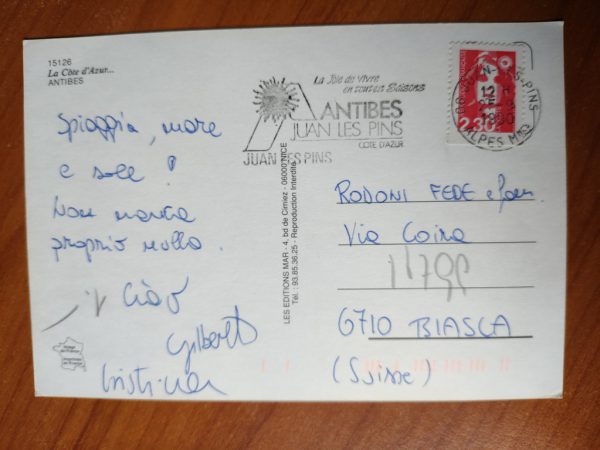 15126
La Côte d'Azur...
ANTIBES
Spiaggia, mare
e sole!
Non manca
proprio nulla.
Ciao
Gilbert
Cristina
LES EDITIONS MAR - 4, bd de Cimiez - 06000 NICE
Tél.: 93.85.36.25 - Reproduction Interdite
La Joie de Vivre
en toutes Saisons
ANTIBES
JUAN LES PINS
COTE D'AZUR
JUAN LES PINS
2,30
12 H
ALPES MMES
RODONI FEDE e fam.
Via Coira
6710 BIASCA
(Suisse)